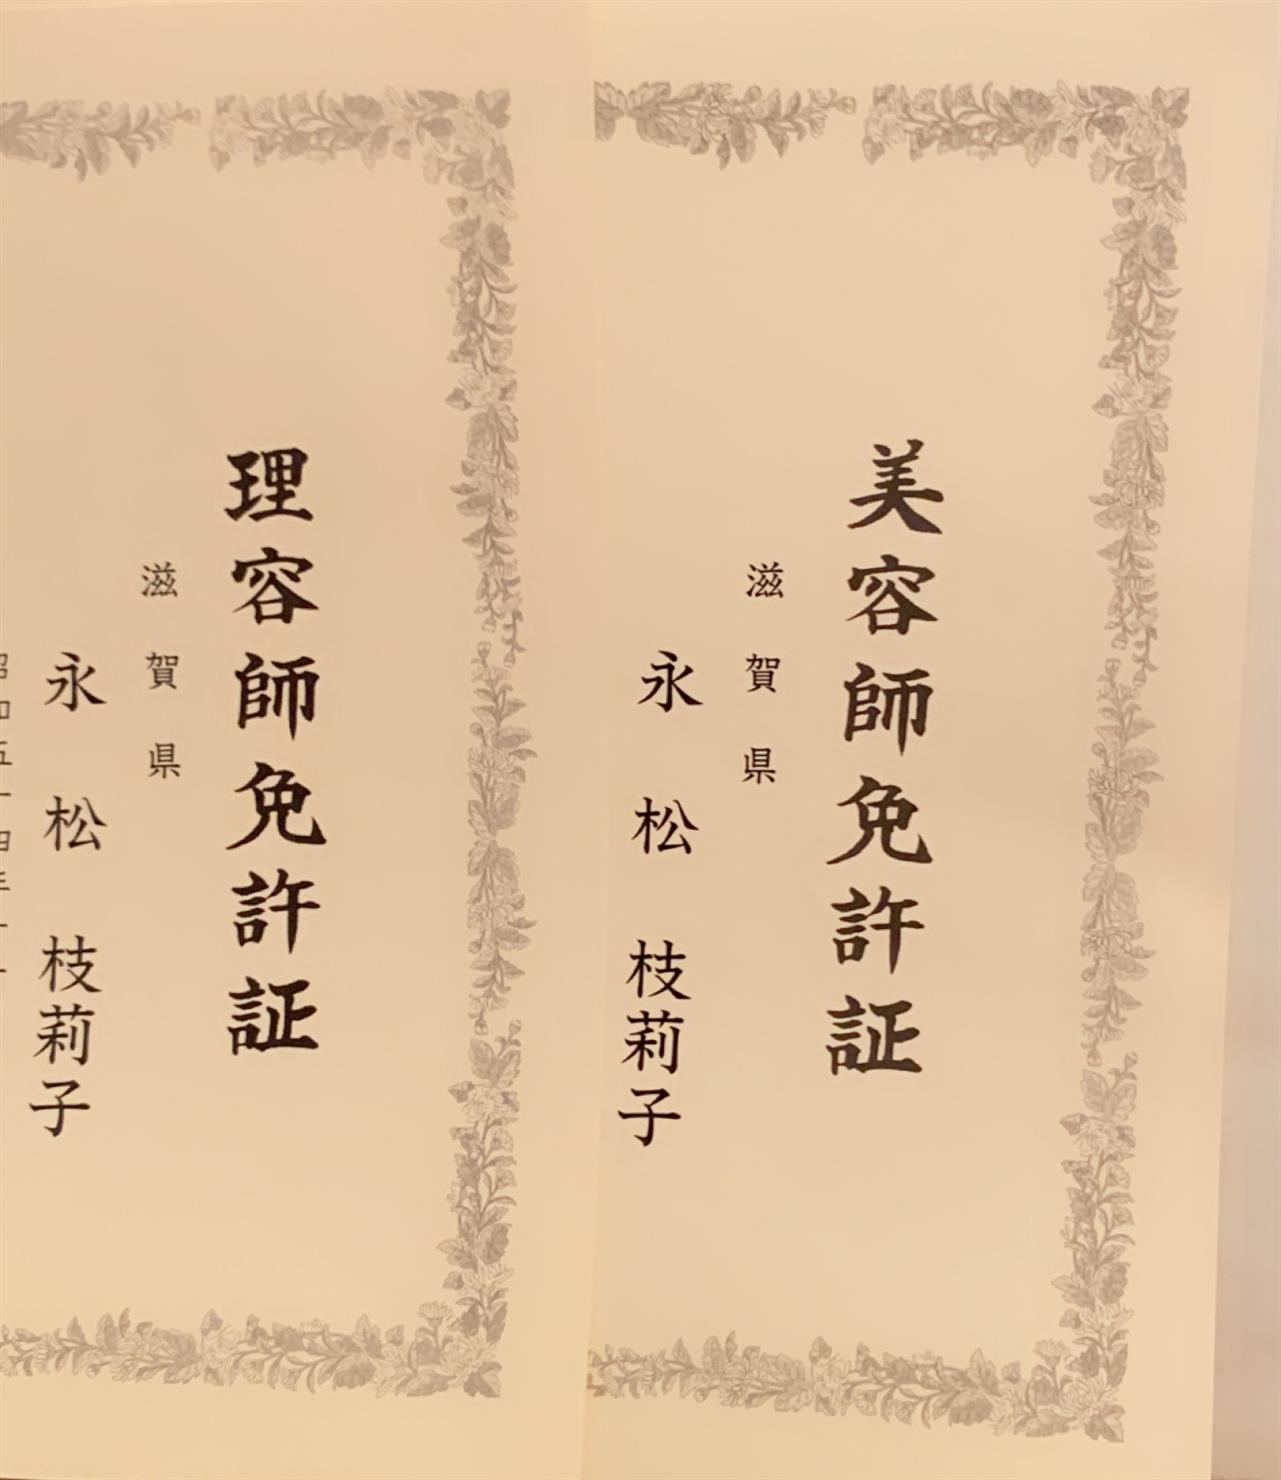 美容師免許証
滋賀県
永松 枝莉子
理容師免許証
滋賀県
永松 枝莉子
昭和五十四年十